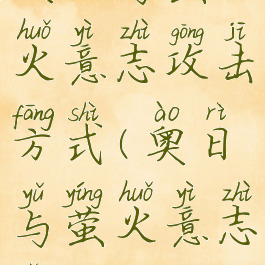 huǒ yì zhì gōng jī
火意志攻击
fāng shì ào rì
方式(奥日
yǔ yíng huǒ yì zhì
与萤火意志